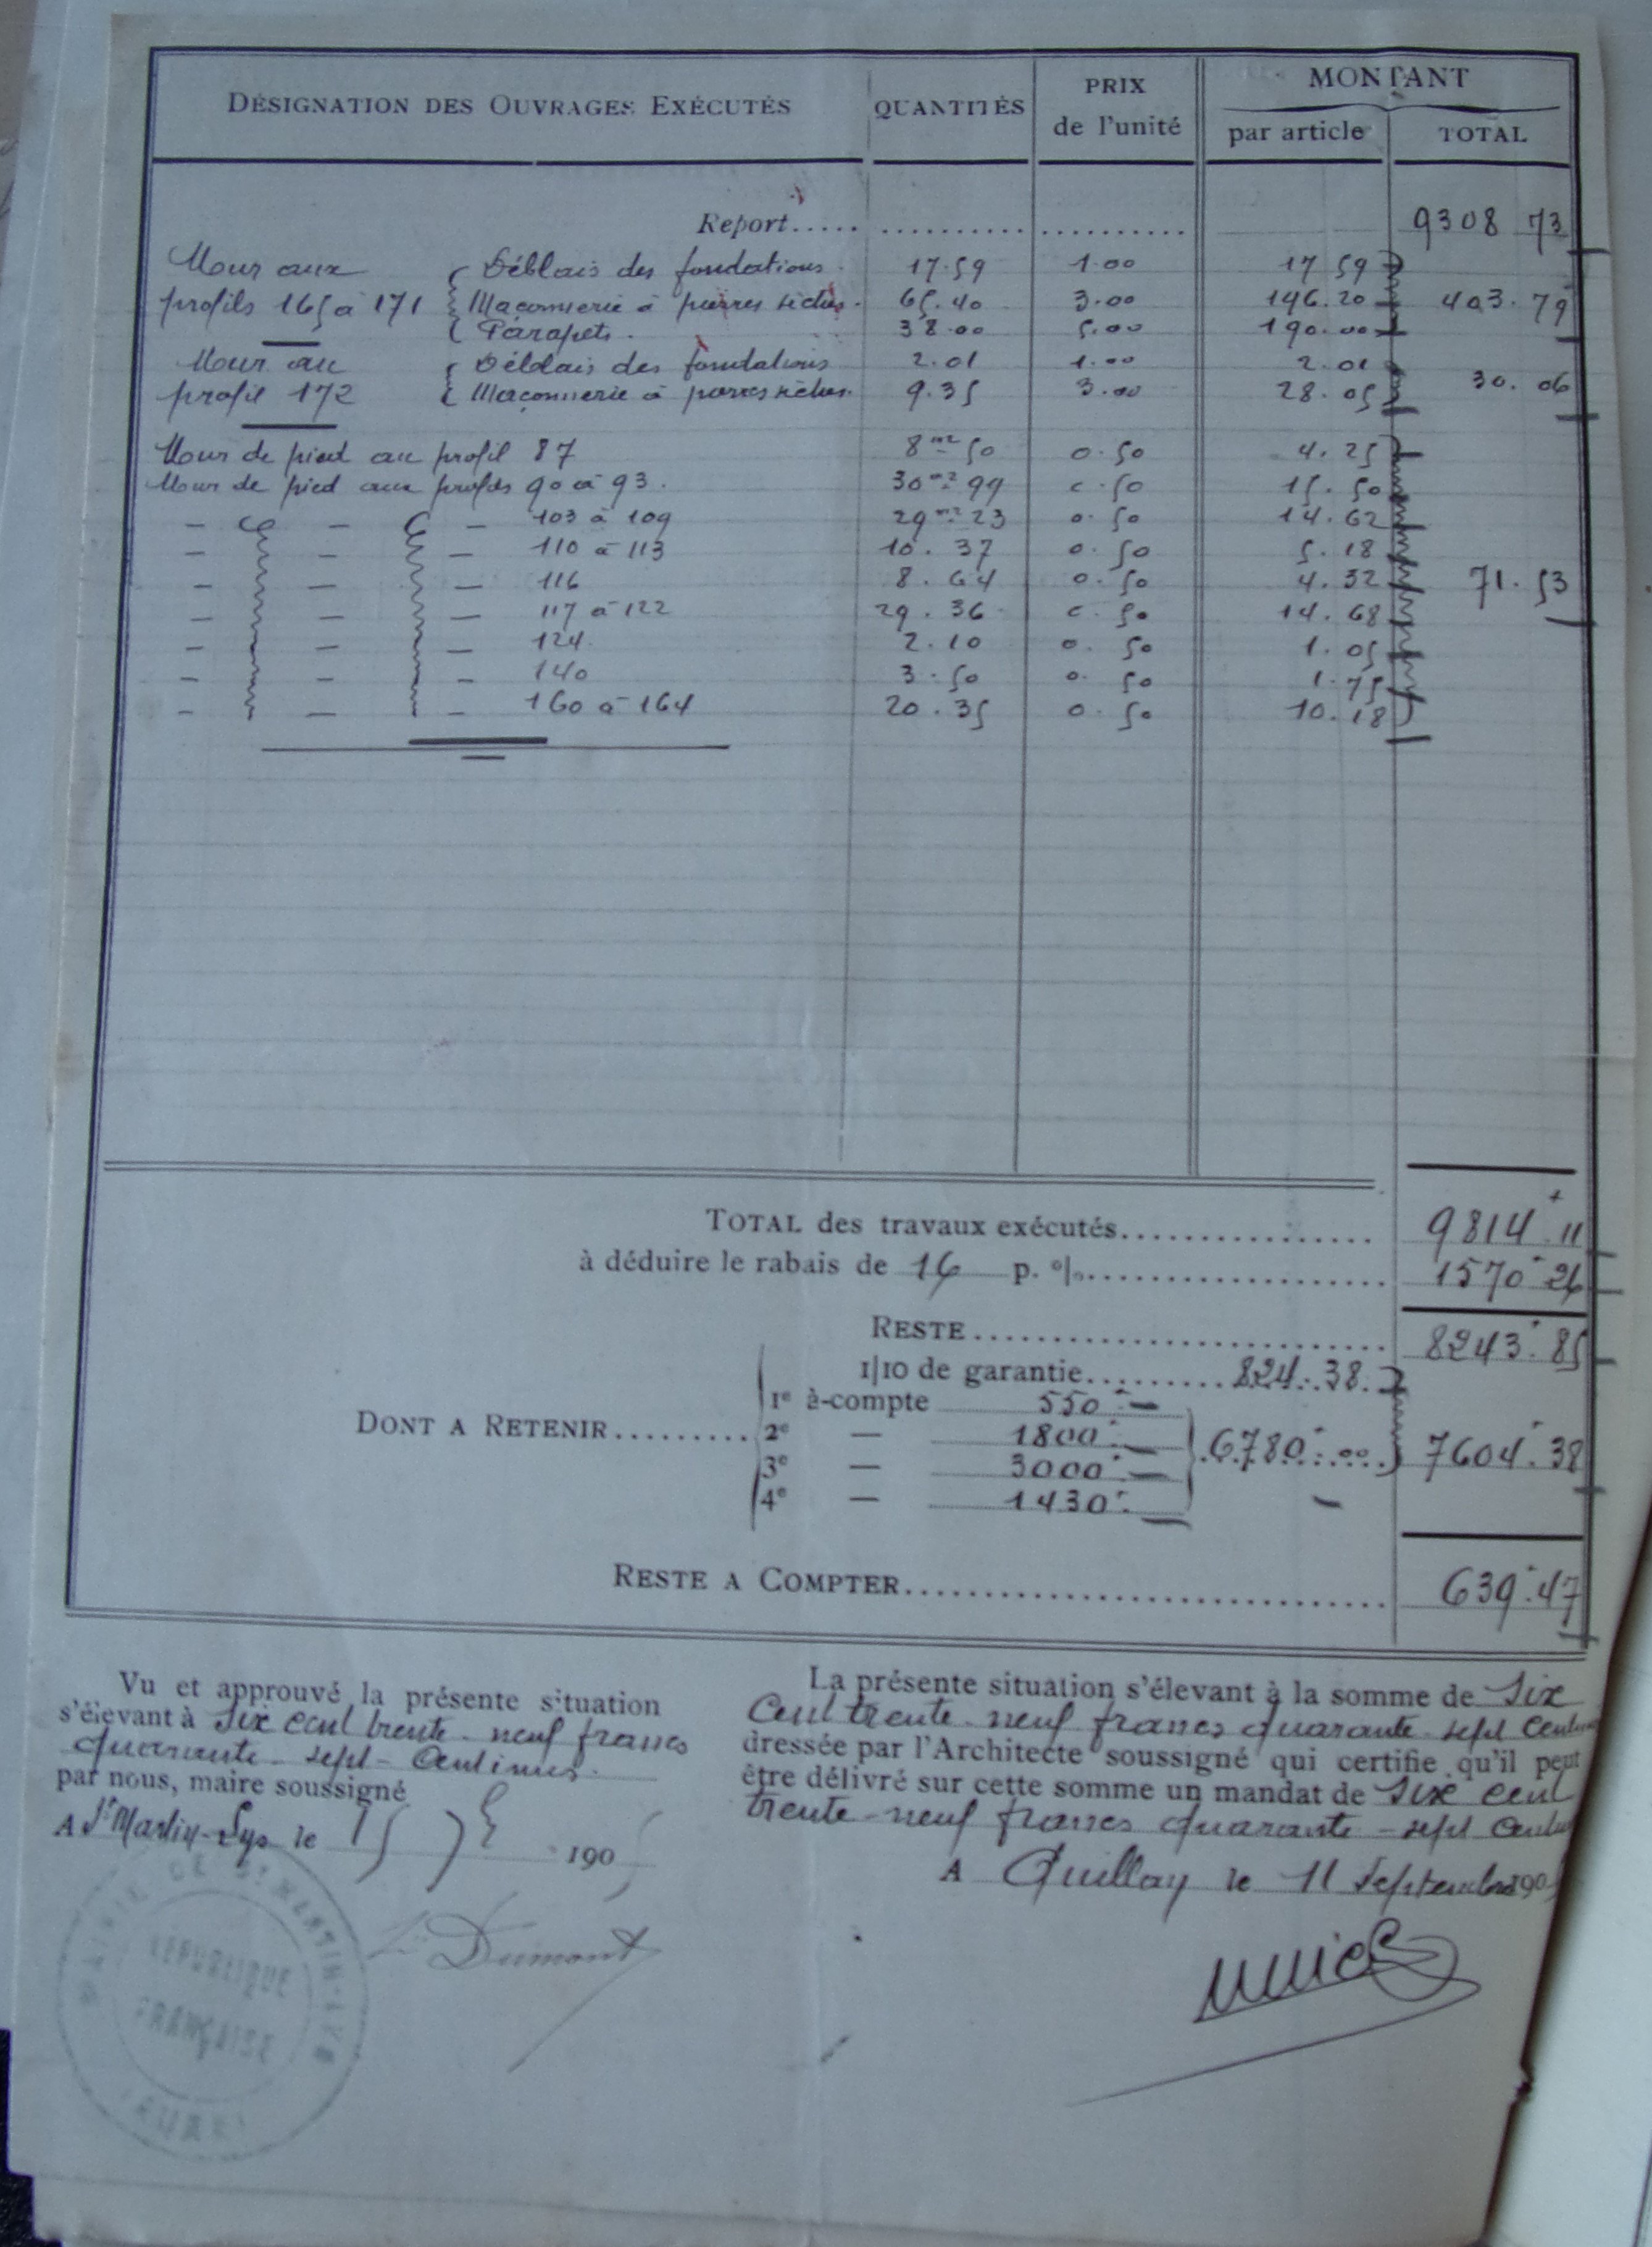 DÉSIGNATION DES OUVRAGES EXÉCUTÉS QUANTITÉS PRIX de l'unité MONTANT par article TOTAL
Report..... 9308 73
Mour aux profils 165 à 171 Déblais des fondations 17.59 1.00 17 59
Maçonnerie à pierres sèches. 65.40 3.00 196.20 403.79
Parapets. 38.00 5.00 190.00
Mour au profil 172 Déblais des fondations 2.01 1.00 2.01
Maçonnerie à pierres sèches. 9.35 3.00 28.05 30.06
Mour de pied au profil 87 8 m2 50 0.50 4.25
Mour de pied aux profils 90 à 93. 30 m2 99 0.50 15.50
- - - 103 à 109 29 m2 23 0.50 14.62
- - - 110 à 113 10.37 0.50 5.18
- - - 116 8.64 0.50 4.32 71.53
- - - 117 à 122 29.36 0.50 14.68
- - - 124. 2.10 0.50 1.05
- - - 140 3.50 0.50 1.75
- - - 160 à 164 20.35 0.50 10.18
TOTAL des travaux exécutés................. 9814.11
à déduire le rabais de 16 p. %..................... 1570.26
RESTE............................. 8243.85
1/10 de garantie......... 824.38.
DONT A RETENIR.........
1e à-compte 550.-
2e — 1800.- 6780.00 7604.38
3e — 3000.-
4e — 1430.-
RESTE A COMPTER.................................. 639.47
Vu et approuvé la présente situation
s'élevant à Six cent trente-neuf francs
quarante-sept-centimes.
par nous, maire soussigné
A St Martin-Lys le 15 190
L. Dumont
MAIRIE DE ST MARTIN-LYS
RÉPUBLIQUE
FRANÇAISE
(AUDE)
La présente situation s'élevant à la somme de Six
Cent trente-neuf francs quarante-sept Centimes
dressée par l'Architecte soussigné qui certifie qu'il peut
être délivré sur cette somme un mandat de Six cent
trente-neuf francs quarante-sept
A Quillan le 11 Septembre 190